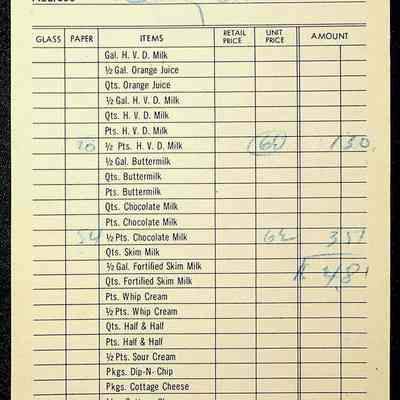 GLASS PAPER ITEMS RETAIL PRICE UNIT PRICE AMOUNT
Gal. H. V. D. Milk
½ Gal. Orange Juice
Qts. Orange Juice
½ Gal. H. V. D. Milk
Qts. H. V. D. Milk
Pts. H. V. D. Milk
20 ½ Pts. H. V. D. Milk 1 30
½ Gal. Buttermilk
Qts. Buttermilk
Pts. Buttermilk
Qts. Chocolate Milk
Pts. Chocolate Milk
54 ½ Pts. Chocolate Milk 3 51
Qts. Skim Milk
½ Gal. Fortified Skim Milk
Qts. Fortified Skim Milk 4 81
Pts. Whip Cream
½ Pts. Whip Cream
Qts. Half & Half
Pts. Half & Half
½ Pts. Sour Cream
Pkgs. Dip-N-Chip
Pkgs. Cottage Cheese